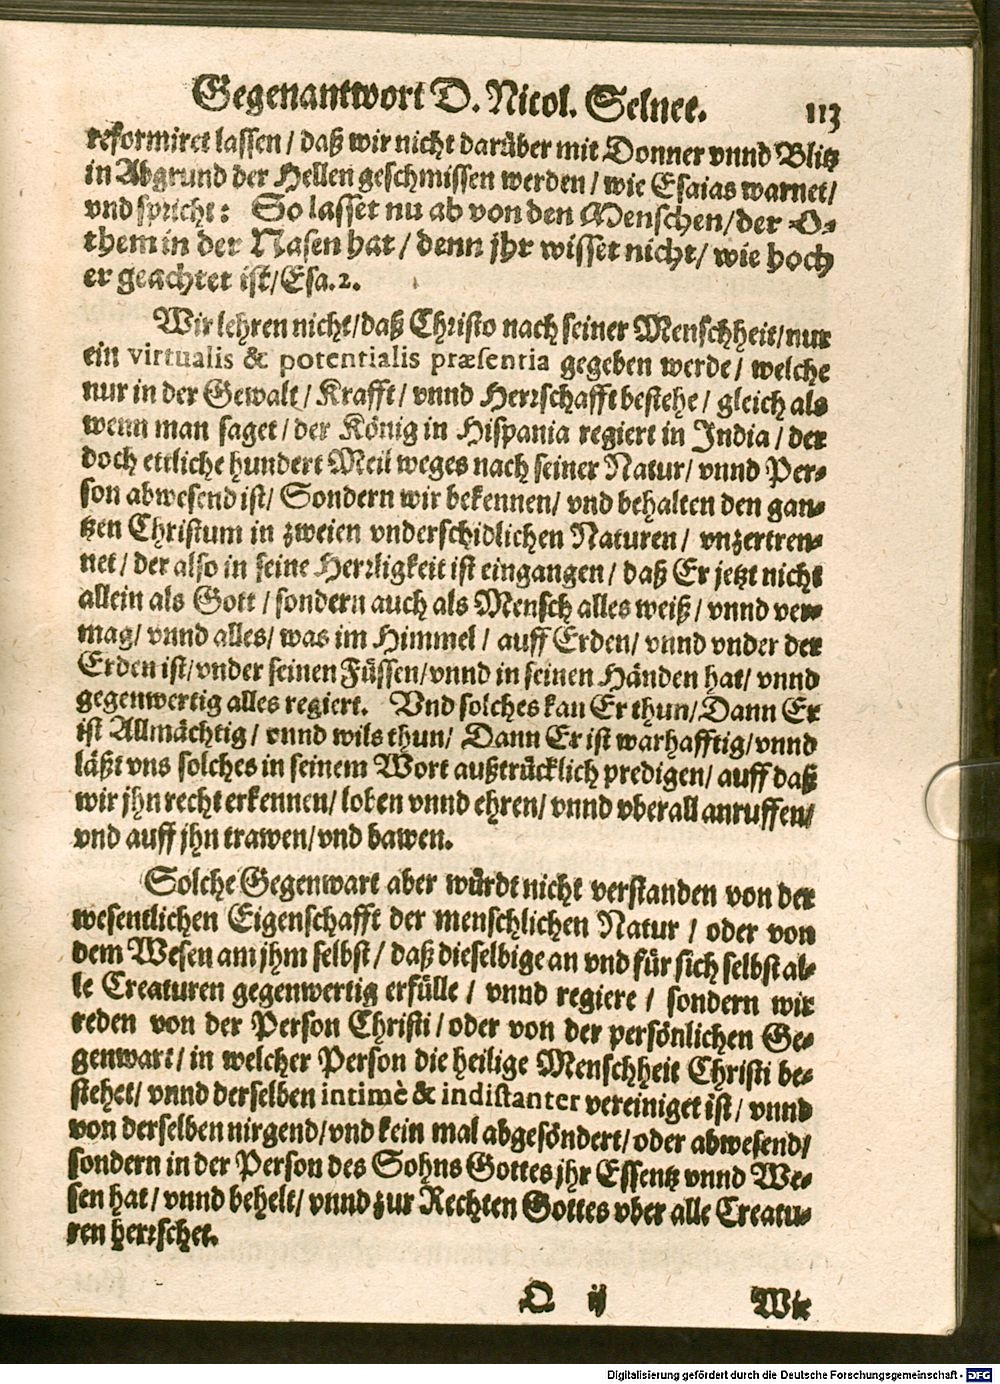 Gegenantwort D. Nicol. Selnec. 113
reformiret lassen / daß wir nicht darüber mit Donner vnnd Blitz
in Abgrund der Hellen geschmissen werden / wie Esaias warnet /
vnd spricht: So lasset nu ab von den Menschen / der O-
them in der Nasen hat / denn jhr wisset nicht / wie hoch
er geachtet ist / Esa. 2.
Wir lehren nicht / daß Christo nach seiner Menschheit / nur
ein virtualis & potentialis præsentia gegeben werde / welche
nur in der Gewalt / Krafft / vnnd Herrschafft bestehe / gleich als
wenn man saget / der König in Hispania regiert in India / der
doch ettliche hundert Meil weges nach seiner Natur / vnnd Per-
son abwesend ist / Sondern wir bekennen / vnd behalten den gan-
tzen Christum in zweien vnderschidlichen Naturen / vnzertren-
net / der also in seine Herrligkeit ist eingangen / daß Er jetzt nicht
allein als Gott / sondern auch als Mensch alles weiß / vnnd ver-
mag / vnnd alles / was im Himmel / auff Erden / vnnd vnder der
Erden ist / vnder seinen Füssen / vnnd in seinen Händen hat / vnnd
gegenwertig alles regiert. Vnd solches kan Er thun / Dann Er
ist Allmächtig / vnnd wils thun / Dann Er ist warhafftig / vnnd
läßt vns solches in seinem Wort außtrücklich predigen / auff daß
wir jhn recht erkennen / loben vnnd ehren / vnnd vberall anruffen /
vnd auff jhn trawen / vnd bawen.
Solche Gegenwart aber würdt nicht verstanden von der
wesentlichen Eigenschafft der menschlichen Natur / oder von
dem Wesen am jhm selbst / daß dieselbige an vnd für sich selbst al-
le Creaturen gegenwertig erfülle / vnnd regiere / sondern wir
reden von der Person Christi / oder von der persönlichen Ge-
genwart / in welcher Person die heilige Menschheit Christi be-
stehet / vnnd derselben intimè & indistanter vereiniget ist / vnnd
von derselben nirgend / vnd kein mal abgesöndert / oder abwesend /
sondern in der Person des Sohns Gottes jhr Essentz vnnd We-
sen hat / vnnd behelt / vnnd zur Rechten Gottes vber alle Creatu-
ren herrschet.
O ij Wir
Digitalisierung gefördert durch die Deutsche Forschungsgemeinschaft - DFG